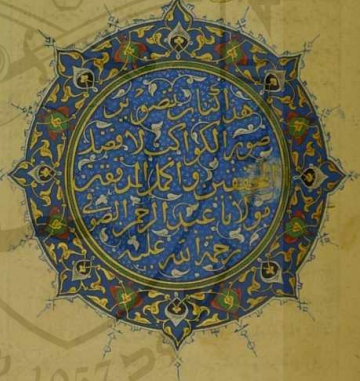 هذا كتاب تصویر
صور الكواكب لافضل
المحققین واكمل المدققین
مولانا عبد الرحمن الصوفی
رحمة الله علیه
1057